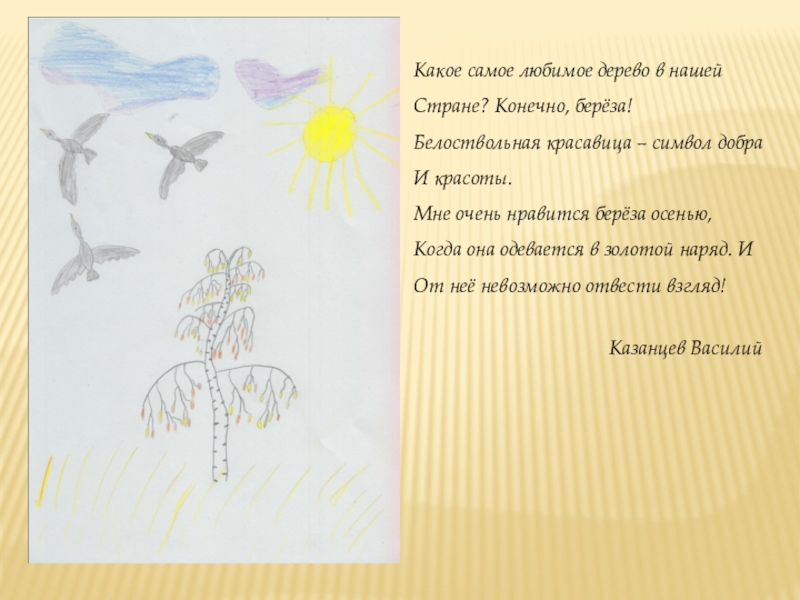 Какое самое любимое дерево в нашей
Стране? Конечно, берёза!
Белоствольная красавица – символ добра
И красоты.
Мне очень нравится берёза осенью,
Когда она одевается в золотой наряд. И
От неё невозможно отвести взгляд!
Казанцев Василий